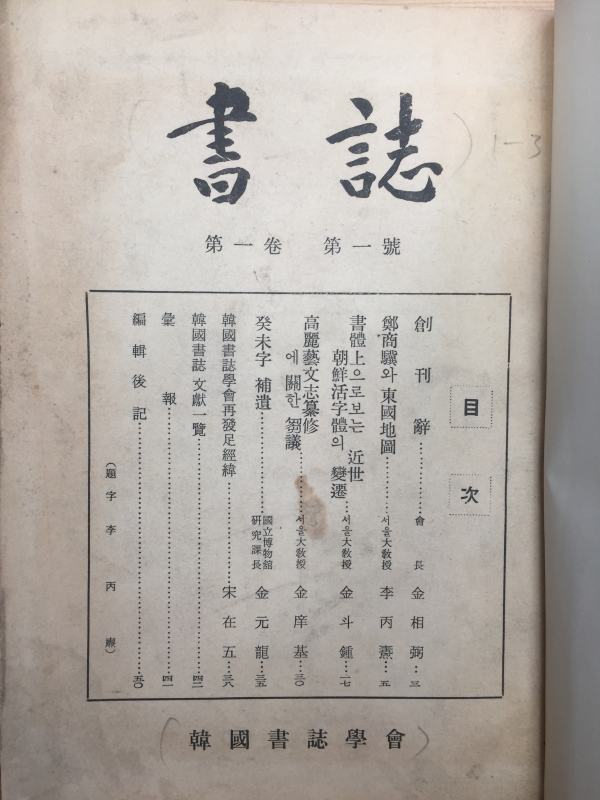 書誌
1-3
第一卷 第一號
目次
創刊辭……會長 金相弼…三
鄭商驥와 東國地圖……서울大敎授 李丙燾…五
書體上으로보는 近世
朝鮮活字體의 變遷…서울大敎授 金斗鍾…一七
高麗藝文志纂修
에 關한 芻議……서울大敎授 金庠基…三〇
癸未字 補遺……國立博物館
硏究課長 金元龍…三五
韓國書誌學會再發足經緯……宋在五…三八
韓國書誌 文獻一覽……四二
彙報……四一
編輯後記……五〇
(題字 李丙燾)
(韓國書誌學會)